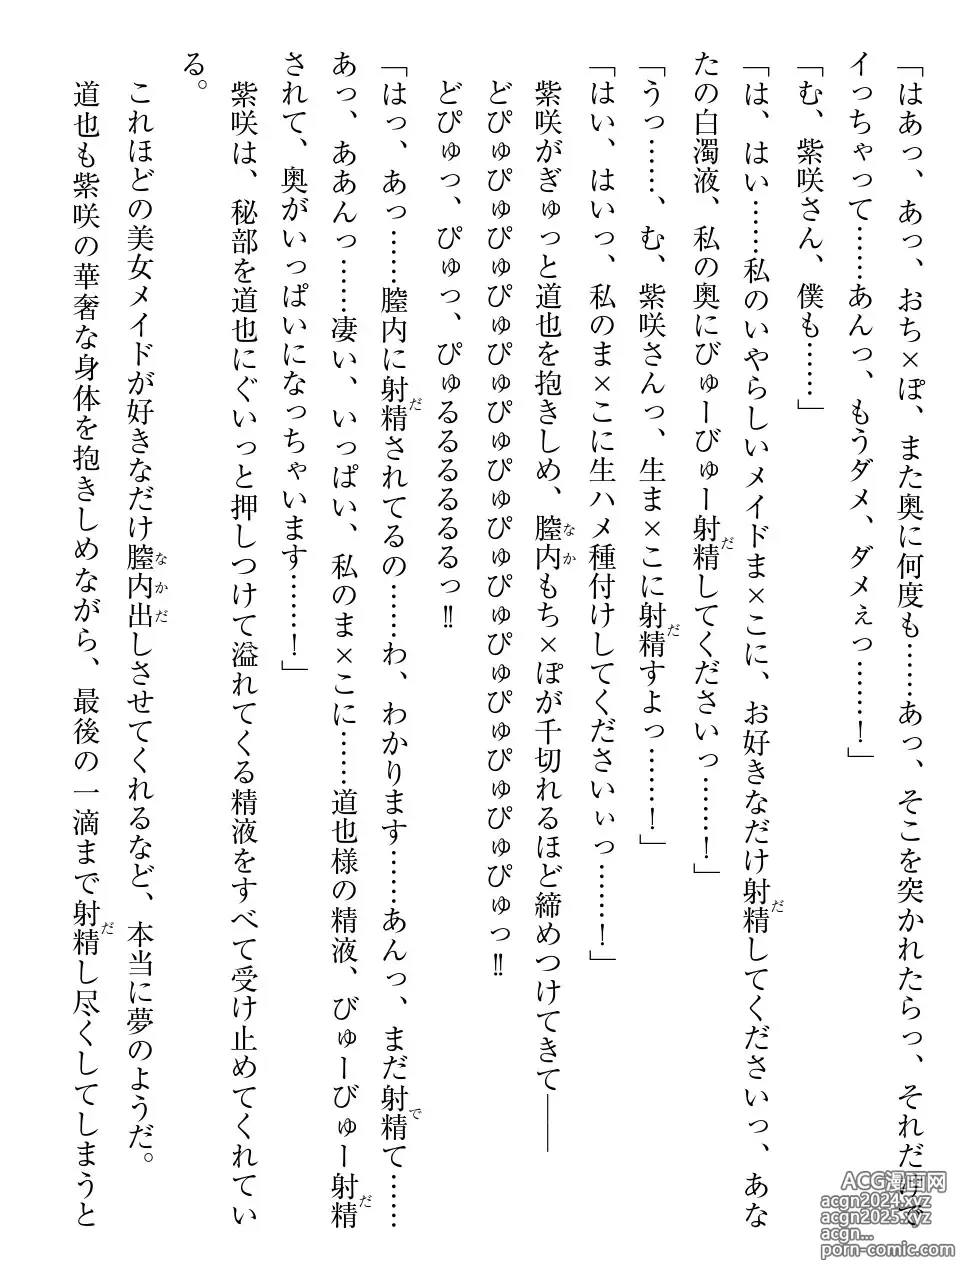 「はあっ、あっ、おち×ぽ、また奥に何度も……あっ、そこを突かれたらっ、それだけで
イっちゃって……あんっ、もうダメ、ダメぇっ……！」
「む、紫咲さん、僕も……」
だ
「は、はい……私のいやらしいメイドま×こに、お好きなだけ射精してくださいっ、あな
だ
たの白濁液、私の奥にびゅーびゅー射精してくださいっ……！」
だ
「うっ……、む、紫咲さんっ、生ま×こに射精すよっ……！」
「はい、はいっ、私のま×こに生ハメ種付けしてくださいぃっ……！」
なか
紫咲がぎゅっと道也を抱きしめ、膣内もち×ぽが千切れるほど締めつけてきて――
どぴゅぴゅぴゅぴゅぴゅぴゅぴゅぴゅぴゅぴゅぴゅぴゅぴゅぴゅぴゅっ‼
どぴゅっ、ぴゅっ、ぴゅるるるるるっ‼
だ で
「はっ、あっ……膣内に射精されてるの……わ、わかります……あんっ、まだ射精て……
だ
あっ、ああんっ……凄い、いっぱい、私のま×こに……道也様の精液、びゅーびゅー射精
されて、奥がいっぱいになっちゃいます……！」
紫咲は、秘部を道也にぐいっと押しつけて溢れてくる精液をすべて受け止めてくれてい
る。
なかだ
これほどの美女メイドが好きなだけ膣内出しさせてくれるなど、本当に夢のようだ。
だ
道也も紫咲の華奢な身体を抱きしめながら、最後の一滴まで射精し尽くしてしまうと
ACG漫画网
acgn2024.xyz
acgn2025.xyz
acgn...
porn-comic.com